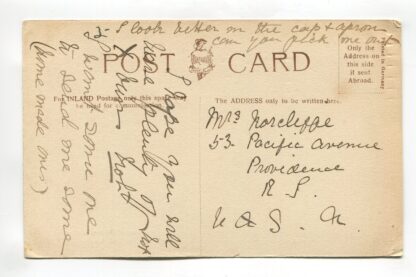 5- I look better in the cap & apron
can you pick me out
POST CARD
Only the
Address on
this side
if sent
Abroad.
Printed in Germany
For INLAND Postage only this space may
be used for communication
The ADDRESS only to be written here.
Mrs Norcliffe
53 Pacific Avenue
Providence
R I.
U & S. A.
I hope you will
have plenty of
Yours
I want some one
to send me some
(home made ones)